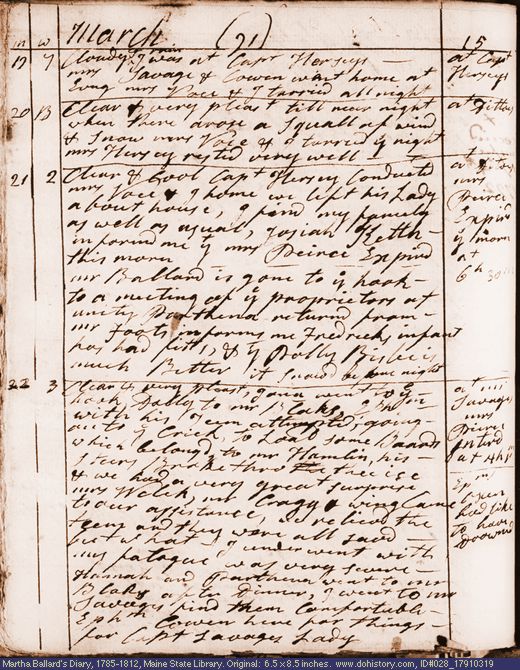 March (21) 15
m w
19 7 Cloudy I was at Capt Herseys at Capt
mrs Savage & Cowen went home at Herseys
Evng mrs Voce & I tarried all night
20 B Clear & very pleast till near night at Dittos
when there arose a Squall of wind
& Snow mrs Voce & I tarried ys night
mrs Hersey rested very well
21 2 Clear & Cool Capt Hersey Conducted at Dittos
mrs Voce & I home we left his Lady mrs
about house, I find my family Peirce
as well as usual, Josian Expird
informd me yt mrs Peirce Expird ys morn
this morn at
mr Ballard is gone to ye hook 6h 30m
to a meeting of ye proprietors at
unity Parthena returnd from
mr Foots informs me Fredricks infant
has had fitts, & yt Dolly is
much Better it snowd
22 3 Clear & very pleast, went to ye at mr
hook Dolly to mr Blaks, Savages
with his Team attempted, going mrs
Creick, to Load some Boards Peirce
which belongd to mr Hamlin, his
Steers broke thro the ice at 4h pm
& we had a very great surprise Epm
mrs Welch, mr Cragg & wing Came
to our assistance, we relievd the had like
team and they were all savd to have
but what I underwent with drownd
my fatague was very severe
Hannah and Parthena went to mr
Blaks after dinner, I went to mr
Savages find them Comfortable
Ephm Cowen here for things
for Capt Savages Lady
Martha Ballard's Diary, 1785-1812, Maine State Library. Original: 6.5 x 8.5 inches. www.dohistory.com, ID#028_17910319